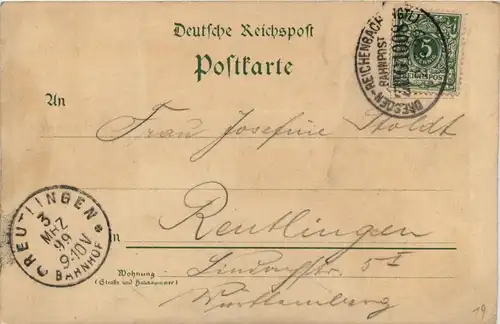 Deutsche Reichspost
Postkarte
DRESDEN-REICHENBACH
BAHNPOST
ZUG 1008
5
An
Frau Josefine Stoldt
REUTLINGEN
3
MRZ
99
9-10V
BAHNHOF
in
Reutlingen
Wohnung
(Straße und Hausnummer)
Lindachstr. 5 I
Württemberg
19